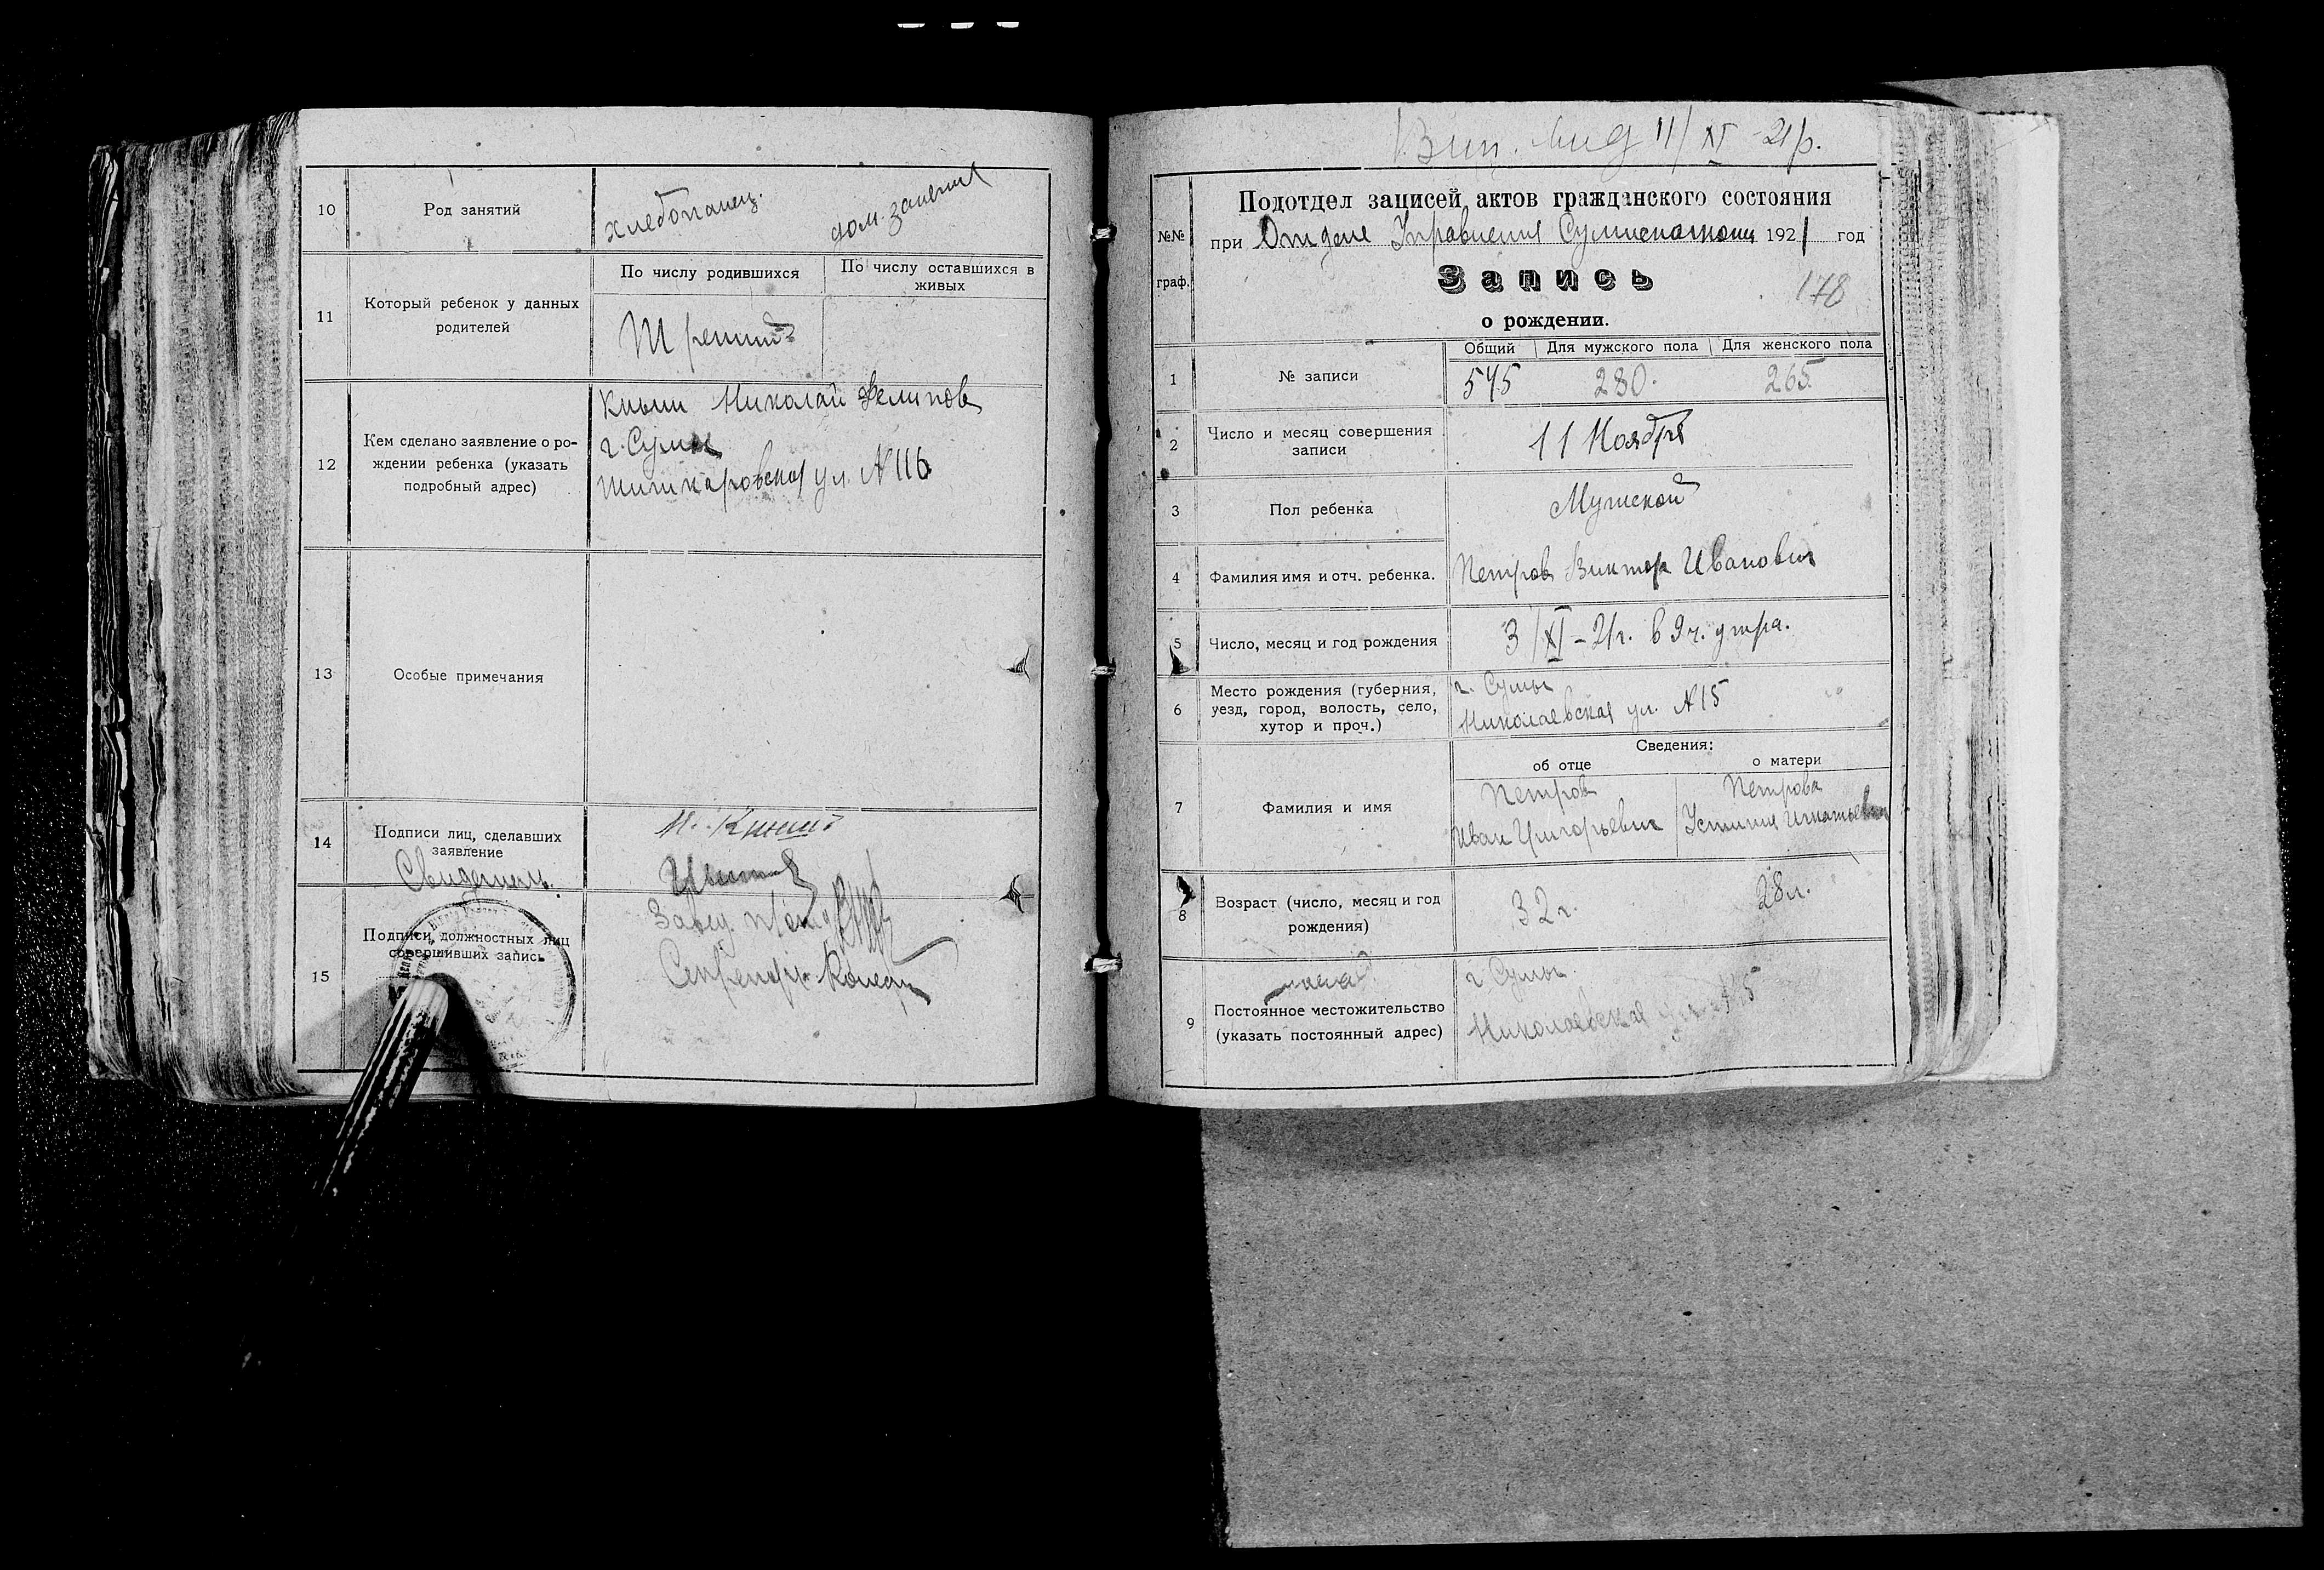 10
Род занятий
хлебопашец.
дом. занятия
11
Который ребенок у данных
родителей
По числу родившихся
По числу оставшихся в
живых
Третий
12
Кем сделано заявление о ро-
ждении ребенка (указать
подробный адрес)
Николай Филипов
г. Сумы
ул. № 116
13
Особые примечания
14
Подписи лиц, сделавших
заявление
Свидетель.
15
Подписи должностных лиц
совершивших запись
Завед.
Секретарь
11/XI - 21р.
№№
граф.
Подотдел записей актов гражданского состояния
при Отделе Управления 1921 год
Запись
178
о рождении.
1
№ записи
Общий
Для мужского пола
Для женского пола
545
280.
265.
2
Число и месяц совершения
записи
11 Ноября
3
Пол ребенка
Мужской
4
Фамилия имя и отч. ребенка.
Петров Виктор Иванович
5
Число, месяц и год рождения
3/XI - 21г. в 9 ч. утра.
6
Место рождения (губерния,
уезд, город, волость, село,
хутор и проч.)
г. Сумы
Николаевская ул. № 15
Сведения:
об отце
о матери
7
Фамилия и имя
Петров
Иван Григорьевич
Петрова
Устиния Игнатьевна
8
Возраст (число, месяц и год
рождения)
32 г.
28 л.
9
Постоянное местожительство
(указать постоянный адрес)
г. Сумы
Николаевская